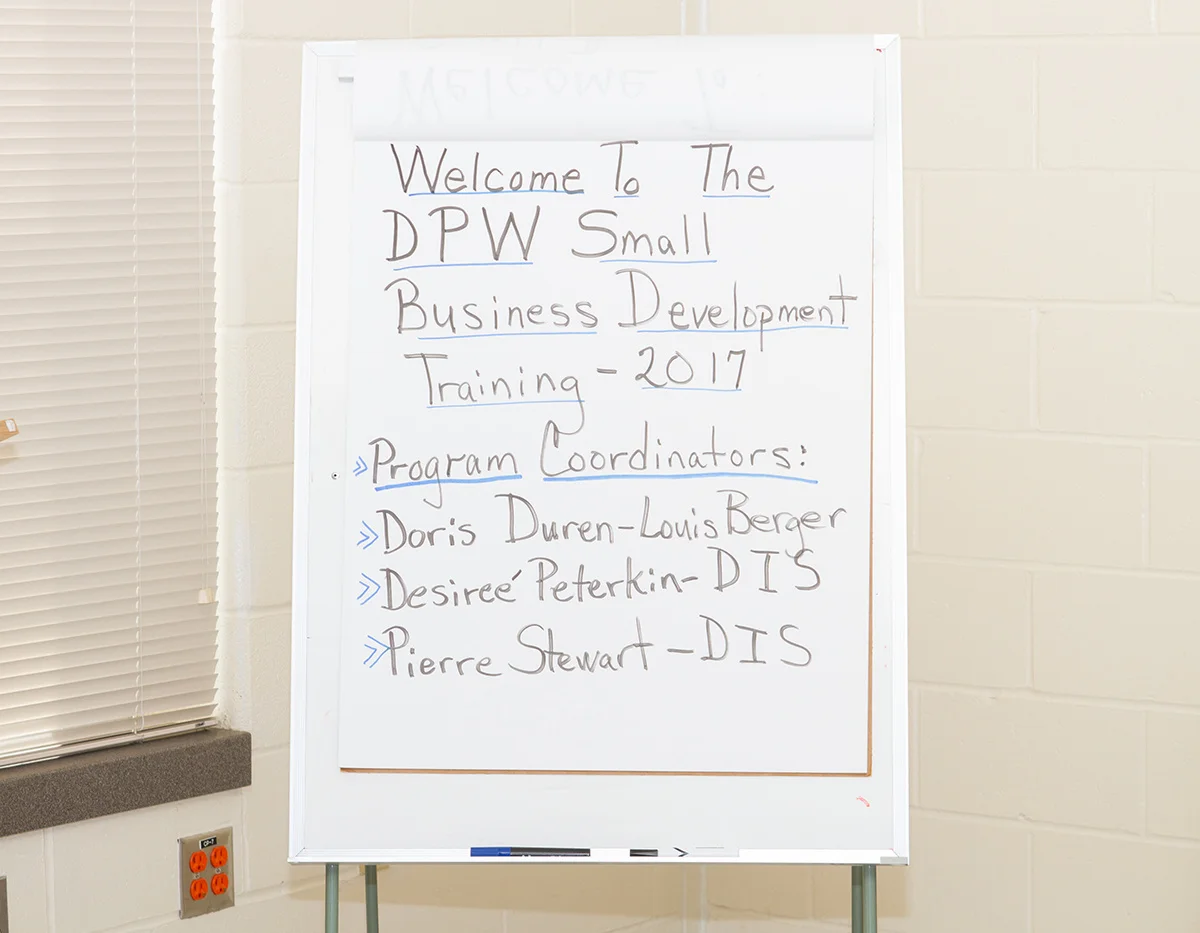 Welcome To The
DPW Small
Business Development
Training - 2017
» Program Coordinators:
» Doris Duren - Louis Berger
» Desireé Peterkin - DIS
» Pierre Stewart - DIS